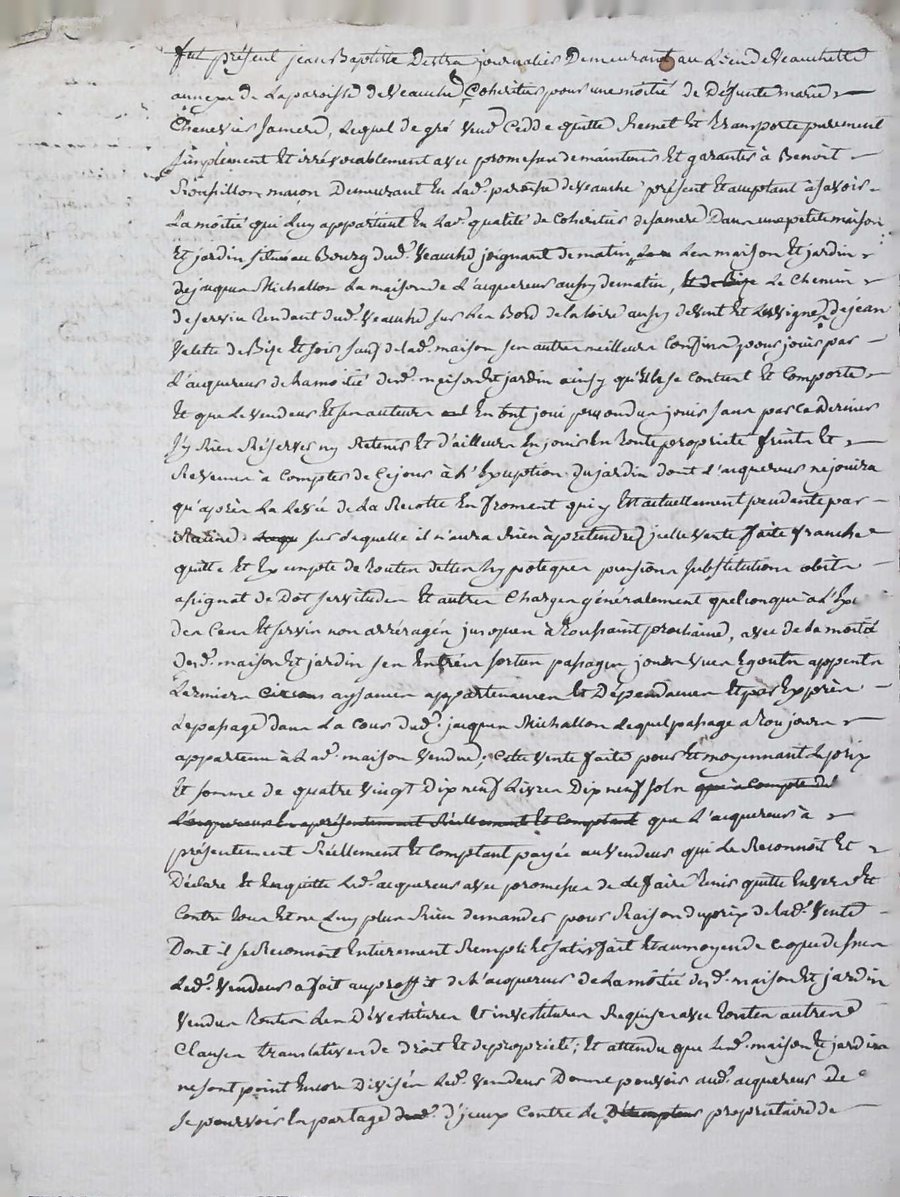 fut présent jean Baptiste Dettra journalier Demeurant au Lieu de Veauchette
annexe de La paroisse de Veauche, Coheritier pour une moitié de Défunte marie
Chenevier sa mere, Lequel de gré vend cedde quitte Remet Et transporte purement
simplement Et irrévocablement avec promesse de maintenir Et garantir à Benoit
Roussillon macon Demeurant En Lad. paroisse de Veauche présent Et acceptant à savoir
La moitié qui Luy appartient En Lad. qualité de Coheritier de sa mere Dans une petite maison
Et jardin situés au Bourg dud. Veauche joignant de matin Les maison Et jardin
de jacques Michallon La maison de L'acquereur aussy de matin, et de Bise Le Chemin
de servin tendant dud. Veauche sur Les Bord de la loire aussy de vent Et Les vigne de jean
Valette de Bize Et soir sauf de lad. maison ses autres meilleurs Confins pour jouir par
L'acquereur de La moitié desd. maison Et jardin ainsy qu'Elle se contient Et comporte
Et que Le vendeur Et ses auteurs En ont joui pu ou du jouir sans par ce dernier
s'y Rien Réserver ny Retenir Et d'ailleurs En jouir En toute propriété fruits Et
Revenus à Compter de Ce jour à L'Exception du jardin dont L'acquereur ne jouira
qu'après La Levée de La Recolte En froment qui y Est actuellement pendante par
Racine. sur Laquelle il n'aura Rien à prétendre, icelle vente faite franche
quitte Et Exempte de toutes dettes hypoteques pensions substitutions obits
assignat de Dot servitudes Et autres Charges généralement quelconque à L'Ex
des Cens Et servis non arréragés jusques à toussaint prochaine, avec de La moitié
desd. maison Et jardin ses Entrées sorties passages jours vues Egouts appents
Larmiers aysances appartenances Et Dépendances Et par Exprès
Le passage dans La Cour dud. jacques Michallon Lequel passage a toujours
appartenu à Lad. maison vendue; Cette vente faite pour Et moyennant Le prix
Et somme de quatre vingt Dix neuf Livres Dix neuf sols que à Compte de
L'acquereur En a présentement Réellement Et Comptant que L'acquereur à
présentement Réellement Et Comptant payée au vendeur qui Le Reconnoit Et
Déclare Et En quitte Led. acquereur avec promesse de le faire tenir quitte Envers Et
Contre tous Et ne Luy plus Rien demander pour Raison du prix de lad. vente
Dont il se Reconnoit Entierement Rempli Et satisfait Et au moyen de ce que dessus
Led. vendeur a fait au proffit de L'acquereur de La moitié desd. maison Et jardin
vendus toutes Les Dévestitures Et investitures Requises avec toutes autres
Clauses translatives de droit Et de propriété; Et attendu que Lesd. maison Et jardin
ne sont point Encore Divisés Led. vendeur Donne pouvoir aud. acquereur De
se pourvoir En partage dud. d'iceux Contre Le Détempteur propriétaire de